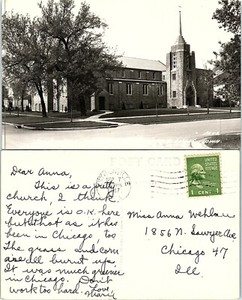 Dear Anna,
This is a pretty
church, I think.
Everyone is O.K. here
but hot as it has
been in Chicago too.
The grass and corn
are all burnt up.
It was much greener
in Chicago. Don't
work too hard. Love
Marie
1 CENT 1
Miss Anna
1856 N. Sawyer Ave
Chicago 47
Ill.